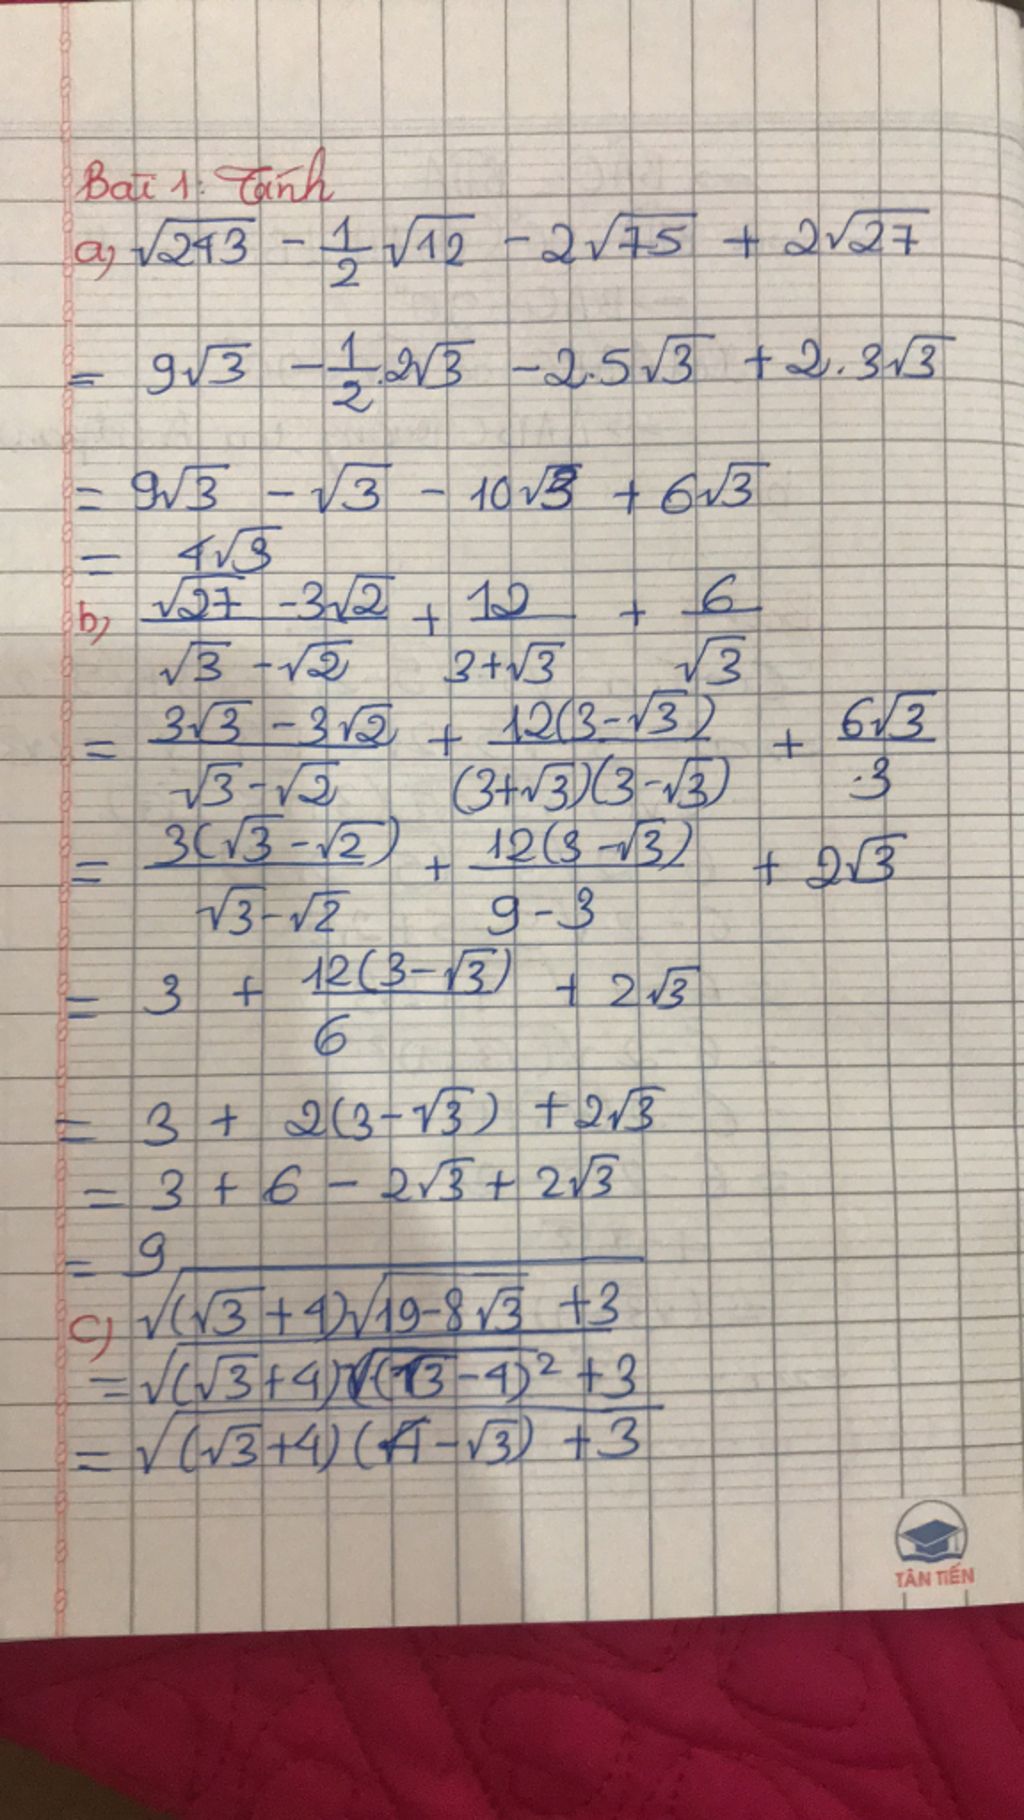 Bài 1: Tính
a, √243 - 1/2 √12 - 2√75 + 2√27
= 9√3 - 1/2 . 2√3 - 2.5√3 + 2.3√3
= 9√3 - √3 - 10√3 + 6√3
= 4√3
b, (√27 - 3√2)/(√3 - √2) + 12/(3+√3) + 6/√3
= (3√3 - 3√2)/(√3 - √2) + 12(3-√3)/((3+√3)(3-√3)) + 6√3/3
= 3(√3 - √2)/(√3-√2) + 12(3-√3)/(9-3) + 2√3
= 3 + 12(3-√3)/6 + 2√3
= 3 + 2(3-√3) + 2√3
= 3 + 6 - 2√3 + 2√3
= 9
c) √((√3+4)√(19-8√3) + 3)
= √((√3+4)√((√3-4)²) + 3)
= √((√3+4)(4-√3) + 3)
TÂN TIẾN